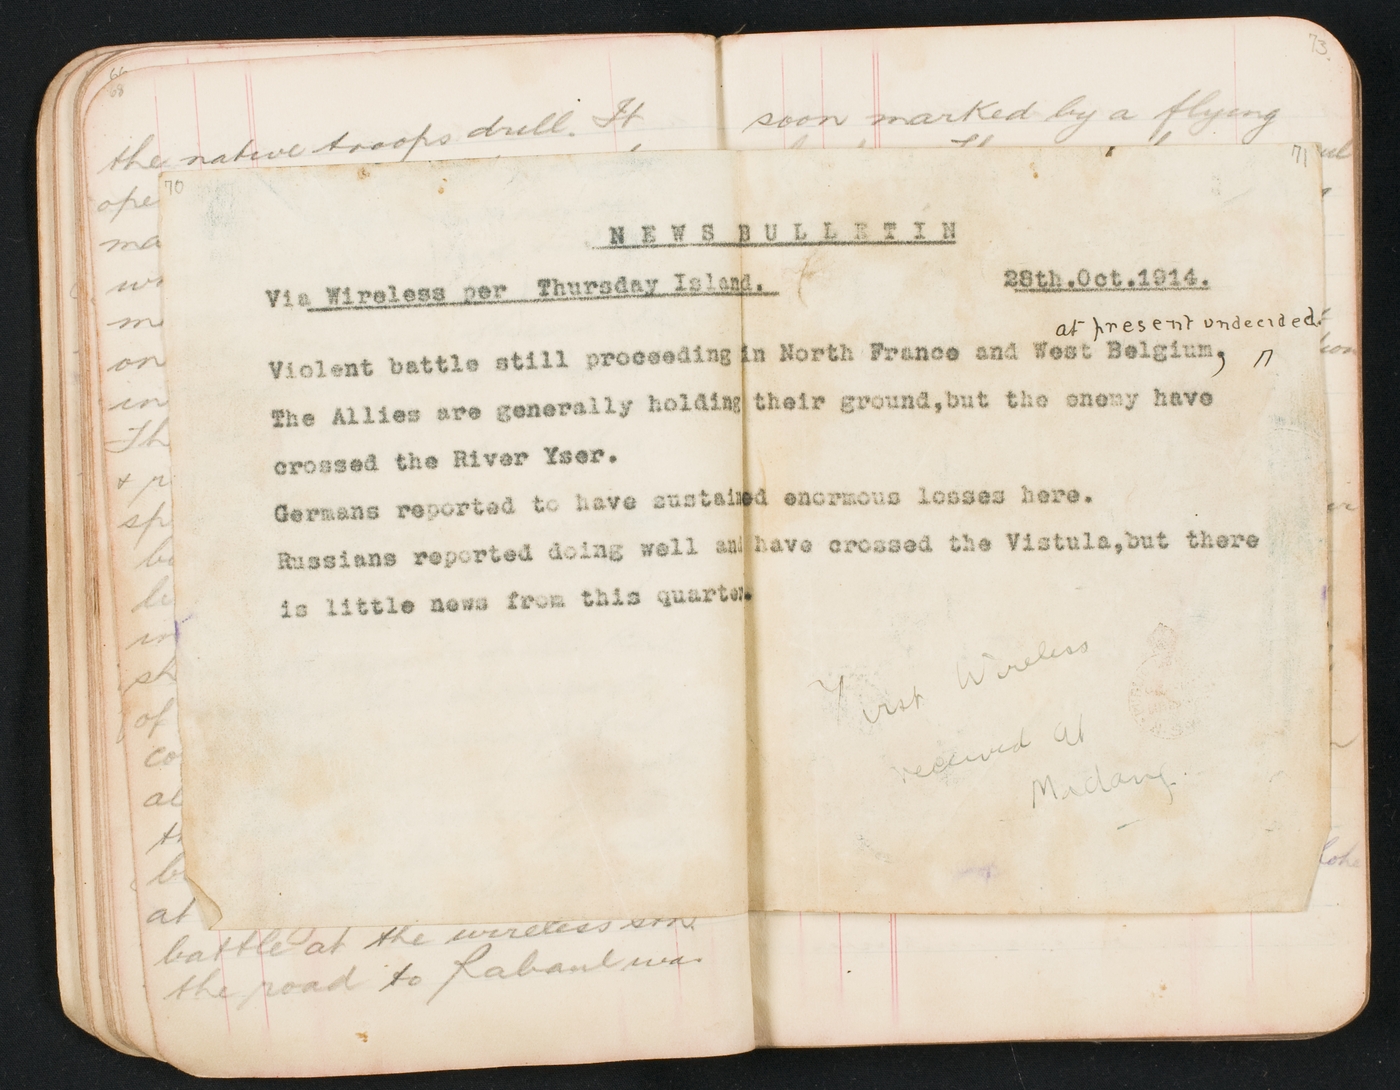 66
68
73.
the native troops drill. It
soon marked by a flying
ope
ma
on
in
Th
& p
sp
sh
of
co
al
at
battle at the wireless stn.
the road to Rabaul was
70
71
NEWS BULLETIN
Via Wireless per Thursday Island. 28th.Oct.1914.
at present undecided.
Violent battle still proceeding in North France and West Belgium,
The Allies are generally holding their ground,but the enemy have
crossed the River Yser.
Germans reported to have sustained enormous losses here.
Russians reported doing well and have crossed the Vistula,but there
is little news from this quarter.
First Wireless
received at
Madang.